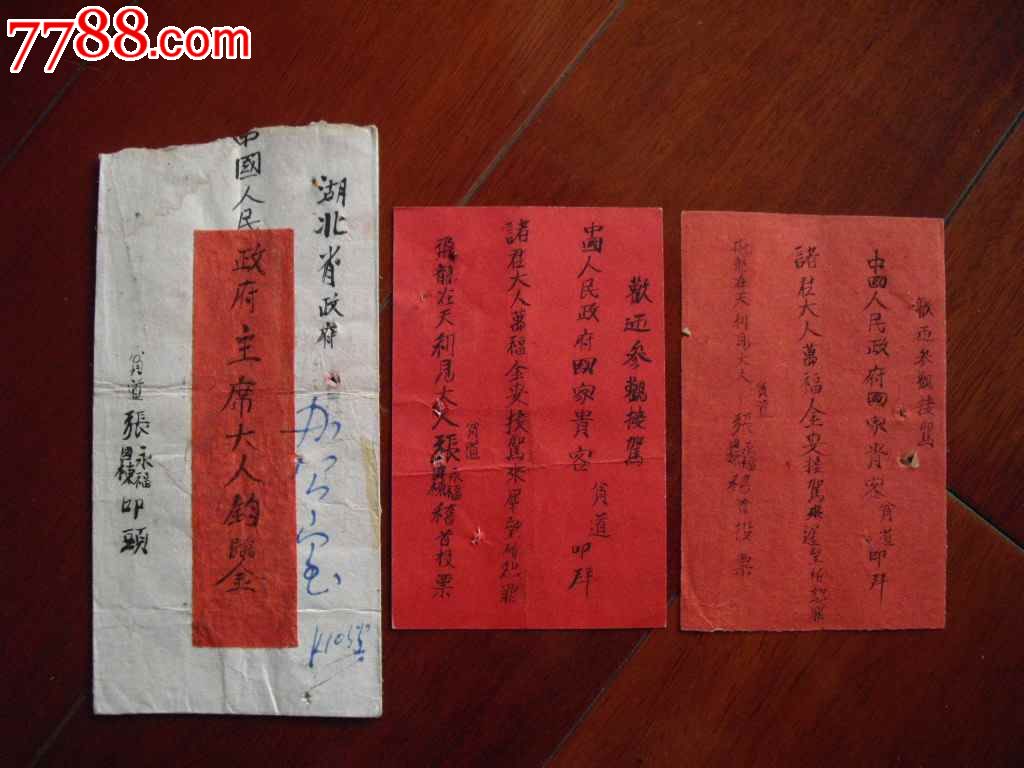 7788.com
湖北肖政府
办公室
中國人民政府主席大人鈞
貧道張永福國棟叩頭
歡迎參觀接駕
中國人民政府國家貴客貧道叩拜
諸君大人萬福金安接駕來遲望祈恕罪
飛龍在天利見大人貧道張永福國棟稽首投票
歡迎參觀接駕
中國人民政府國家肖客貧道叩拜
諸君大人萬福金安接駕來遲望祈恕罪
飛龍在天利見大人貧道張永福國棟稽首投票